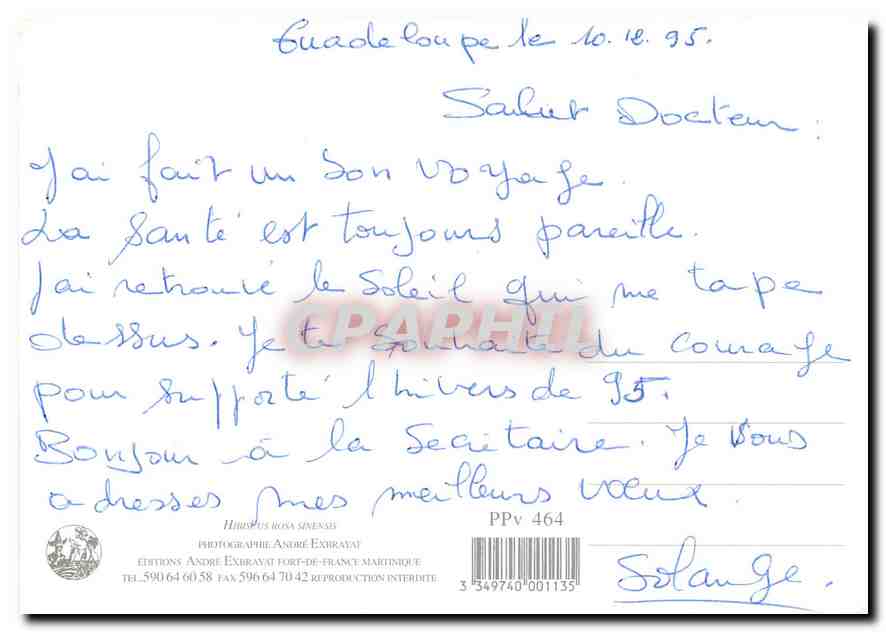 Guadeloupe le 10.12.95.
Salut Docteur :
J'ai fait un bon voyage.
La santé est toujours pareille.
J'ai retrouvé le soleil qui me tape
dessus. Je te souhaite du courage
pour supporté l'hivers de 95.
Bonjour à la Secrétaire. Je vous
adresses mes meilleurs vœux.
Solange.
CPAPHIL
HIBISCUS ROSA SINENSIS
PHOTOGRAPHIE ANDRÉ EXBRAYAT
ÉDITIONS ANDRÉ EXBRAYAT FORT-DE-FRANCE MARTINIQUE
TEL..590 64 60 58 FAX 596 64 70 42 REPRODUCTION INTERDITE
PPv 464
3 349740 001135